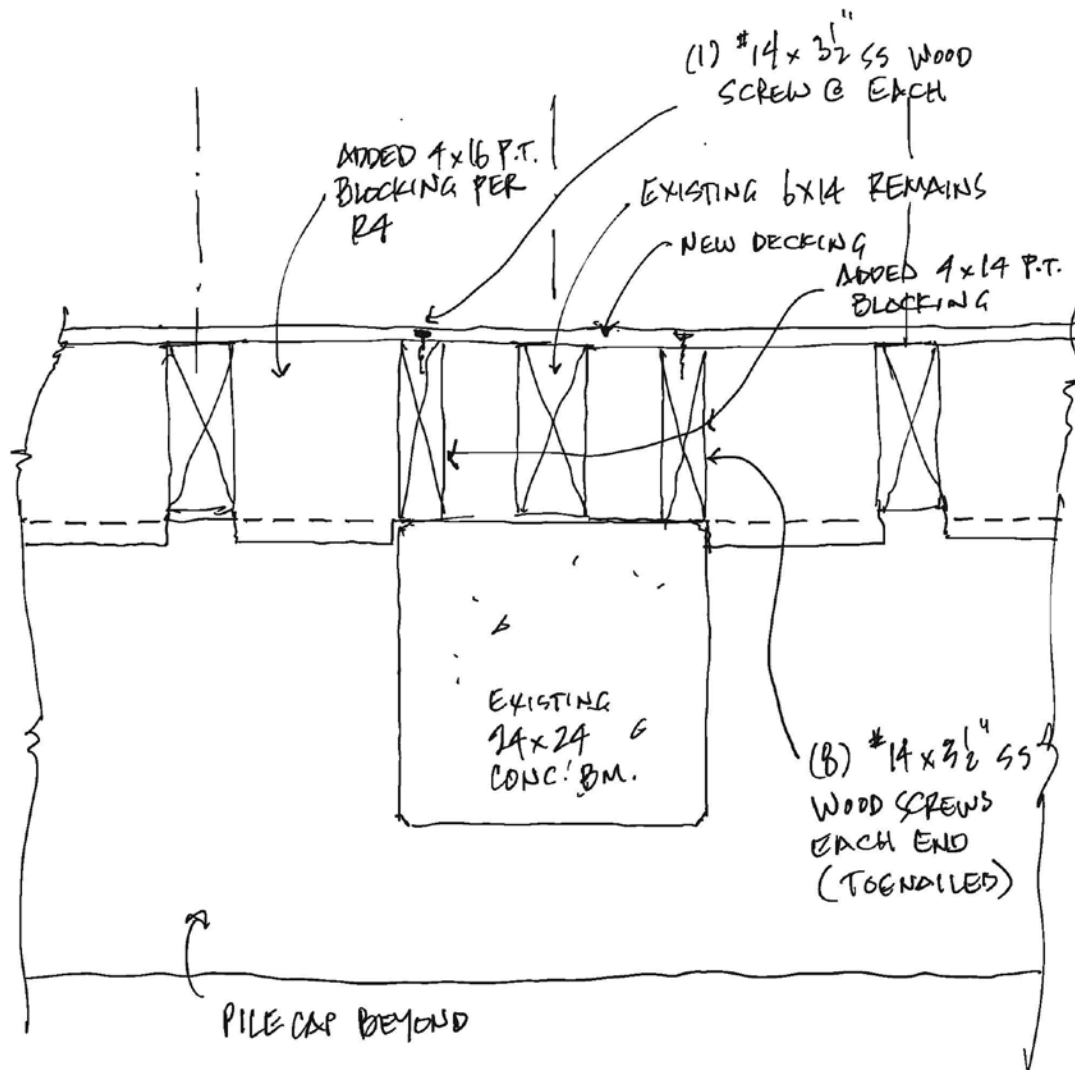 (1) #14 x 3 1/2" SS WOOD
SCREW @ EACH
ADDED 4x16 P.T.
BLOCKING PER
R4
EXISTING 6x14 REMAINS
NEW DECKING
ADDED 4x14 P.T.
BLOCKING
EXISTING
24x24
CONC. BM.
(8) #14 x 3 1/2" SS
WOOD SCREWS
EACH END
(TOENAILED)
PILE CAP BEYOND